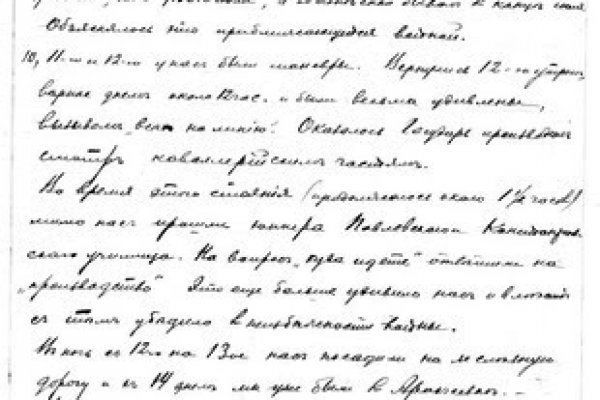 Объяснялось это приближающейся войной.
10, 11-го и 12-го у нас были маневры. Вернулись 12-го утром,
вернее днем около 12 час. и были весьма удивлены,
вызовом „всех на линию“. Оказалось Государь производил
смотр кавалерийским частям.
Во время этого стояния (продолжалось около 1½ часов)
мимо нас прошли юнкера Павловского
училища. На вопрос „куда идете“ ответили на
„производство“ Это еще больше удивило нас и
с тем убедило в неизбежности войны.
В ночь с 12го на 13ое нас посадили на железную
дорогу и 14 днем мы уже были в